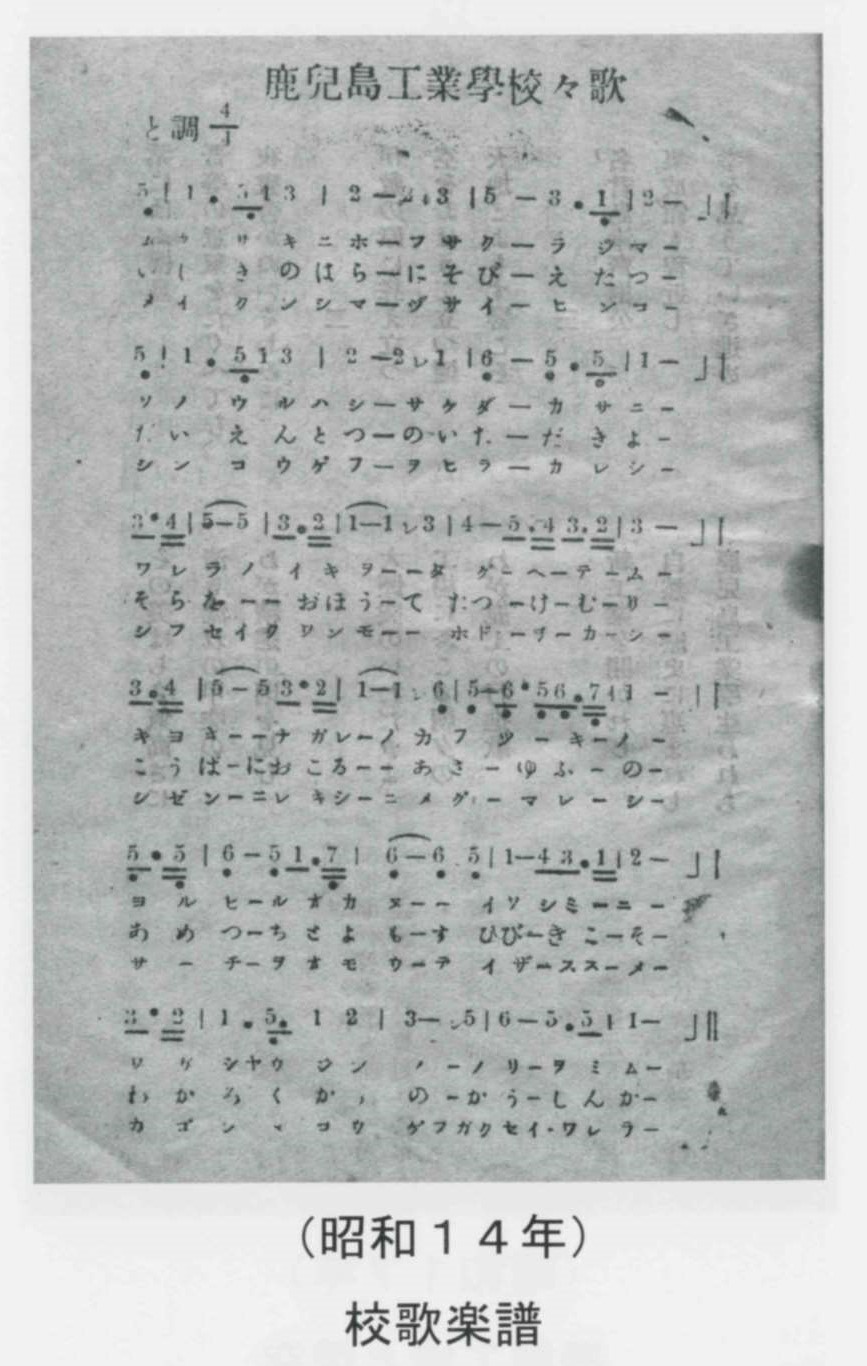 鹿兒島工業學校々歌
と調 4/4
5 | 1 · 5 1 3 | 2 — 2 3 | 5 — 3 · 1 | 2 —
キニホーフサクーラジマー
きのはらーにそびーえたつー
メイクンシマーヅサイーヒンコー
5 | 1 · 5 1 3 | 2 — 2 1 | 6 — 5 · 5 | 1 —
ソノウルハシーサケダーカサニー
だいえんとつーのいたーだきよー
シンコウゲフーヲヒラーカレシー
3 · 4 | 5 — 5 | 3 · 2 | 1 — 1 3 | 4 — 5 · 4 3 · 2 | 3 —
ワレラノイキヲーータゲーヘーテームー
そらをーーおほうーてたつーけーむーりー
シフセイクワンモーーホドーチーカーシー
3 · 4 | 5 — 5 3 · 2 | 1 — 1 6 | 5 — 6 · 5 6 · 7 1 —
キヨキーーナガレーノカフツーキーノー
こうばーにおころーーあさーゆふーのー
シゼンーニレキシーニメグーマレーシー
5 · 5 | 6 — 5 1 · 7 | 6 — 6 5 | 1 — 4 3 · 1 | 2 —
ヨルヒールオカヌーーイソシミーニー
あめつーちさよもーすひびーきこーそー
サーチーヲオモウーテイザーススーメー
3 · 2 | 1 · 5 1 2 | 3 — 5 | 6 — 5 · 5 | 1 —
ワガシヤウジンノーノリーヲミムー
わかろくかのーかうーしんかー
カゴシマコウゲフガクセイ・ワレラー
（昭和１４年）
校歌楽譜